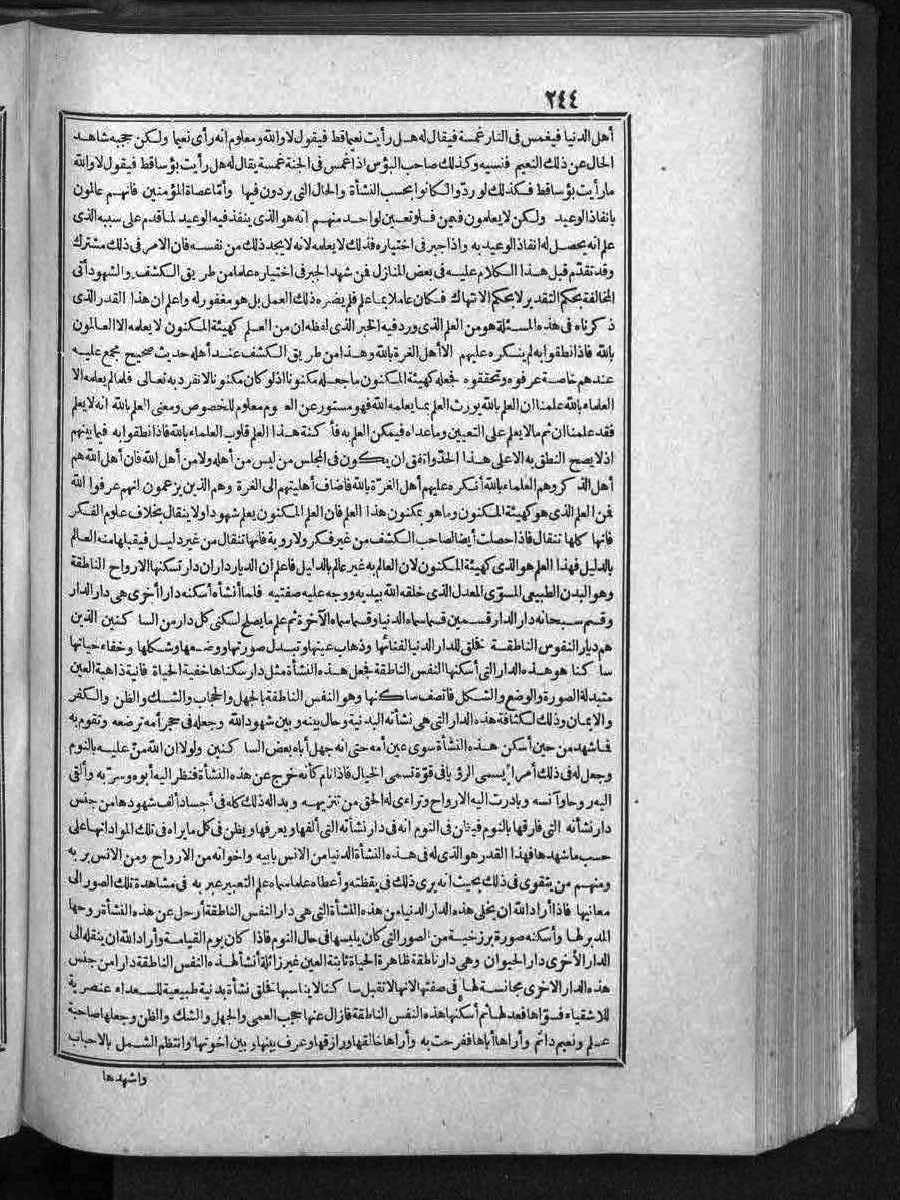 ٢٤٤
أهل الدنيا فيغمس فى النار غمسة فيقال له هل رأيت نعيما قط فيقول لا والله ومعلوم انه رأى نعيما ولكن حجبه شاهد
الحال عن ذلك النعيم فنسيه وكذلك صاحب البؤس اذا غمس فى الجنة غمسة يقال له هل رأيت بؤسا قط فيقول لا والله
ما رأيت بؤسا قط فكذلك لو ردّوا لكانوا بحسب النشأة والحال التى يردون فيها وأمّا عصاة المؤمنين فانهم عالمون
بانفاذ الوعيد ولكن لا يعلمون فيمن فلو تعين لواحد منهم انه هو الذى ينفذ فيه الوعيد لما قدم على سببه الذى
علم انه يحصل له انفاذ الوعيد به واذا جبر فى اختياره فذلك لا يعلمه لانه لا يجد ذلك من نفسه فان الامر فى ذلك مشترك
وقد تقدّم قبل هذا الكلام عليه فى بعض المنازل فمن شهد الجبر فى اختياره علما من طريق الكشف والشهود أتى
المخالفة بحكم التقدير لا بحكم الانتهاك فكان عاملا بما علم فلم يضره ذلك العمل بل هو مغفور له واعلم ان هذا القدر الذى
ذكرناه فى هذه المسئلة هو من العلم الذى ورد فيه الخبر الذى لفظه ان من العلم كهيئة المكنون لا يعلمه الا العالمون
بالله فاذا نطقوا به لم ينكره عليهم الا أهل الغرة بالله وهذا من طريق الكشف عند أهله حديث صحيح مجمع عليه
عندهم خاصة عرفوه وتحققوه فجعله كهيئة المكنون ما جعله مكنونا اذ لو كان مكنونا لانفرد به تعالى فلما لم يعلمه الا
العلماء بالله علمنا ان العلم بالله يورث العلم بما يعلمه الله فهو مستور عن العموم معلوم للخصوص ومعنى العلم بالله انه لا يعلم
فقد علمنا ان ثم ما لا يعلم على التعيين وما عداه فيمكن العلم به فأكنة هذا العلم قلوب العلماء بالله فاذا نطقوا به فيما بينهم
اذ لا يصح النطق به الا على هذا الحدّ واتفق ان يكون فى المجلس من ليس من أهله ولا من أهل الله فان أهل الله هم
أهل الذكر وهم العلماء بالله أنكره عليهم أهل الغرّة بالله فاضاف أهليتهم الى الغرة وهم الذين يزعمون انهم عرفوا الله
فمن العلم الذى هو كهيئة المكنون وما هو بمكنون هذا العلم فان العلم المكنون يعلم شهودا ولا ينقال بخلاف علوم الفكر
فانها كلها تنقال فاذا حصلت أيضا لصاحب الكشف من غير فكر ولا روية فانها تنقال من غير دليل فيقبلها منه العالم
بالدليل فهذا العلم هو الذى كهيئة المكنون لان العالم به غير عالم بالدليل فاعلم ان الدار داران دار تسكنها الارواح الناطقة
وهو البدن الطبيعى المسوّى المعدل الذى خلقه الله بيديه ووجه عليه صفتيه فلما أنشأه أسكنه دارا أخرى هى دار الدار
وقسم سبحانه دار الدار قسمين قسما سماه الدنيا وقسما سماه الآخرة ثم علم ما يصلح لسكنى كل دار من الساكنين الذين
هم ديار النفوس الناطقة فخلق للدار الدنيا لفنائها وذهاب عينها وتبدل صورتها ووضعها وشكلها وخفاء حياتها
ساكنا هو هذه الدار التى أسكنها النفس الناطقة فجعل هذه النشأة مثل دار سكناها خفية الحياة فانية ذاهبة العين
متبدلة الصورة والوضع والشكل فاتصف ساكنها وهو النفس الناطقة بالجهل والحجاب والشك والظن والكفر
والايمان وذلك لكثافة هذه الدار التى هى نشأته البدنية وحال بينه وبين شهود الله وجعله فى حجر أمه ترضعه وتقوم به
فما شهد من حين أسكن هذه النشأة سوى عين أمه حتى انه جهل أباه بعض الساكنين ولولا ان الله منّ عليه بالنوم
وجعل له فى ذلك أمرا يسمى الرؤيا فى قوّة تسمى الخيال فاذا نام كأنه خرج عن هذه النشأة فنظر اليه أبوه وسرّ به وألقى
اليه روحا وآنسه وبادرت اليه الارواح وتراءى له الحق من تنزيهه وبدا له ذلك كله فى أجساد ألف شهودها من جنس
دار نشأته التى فارقها بالنوم فيظن فى النوم انه فى دار نشأته التى ألفها ويعرفها ويظن فى كل ما يراه فى تلك المواد انها على
حسب ما شهدها فهذا القدر هو الذى له فى هذه النشأة الدنيا من الانس بابيه واخوانه من الارواح ومن الانس بربه
ومنهم من يتقوى فى ذلك بحيث انه يرى ذلك فى يقظته وأعطاه علما سماه علم التعبير عبر به فى مشاهدة تلك الصور الى
معانيها فاذا أراد الله ان يخلى هذه الدار الدنيا من هذه النشأة التى هى دار النفس الناطقة أرحل عن هذه النشأة روحها
المدبر لها وأسكنه صورة برزخية من الصور التى كان يلبسها فى حال النوم فاذا كان يوم القيامة وأراد الله ان ينقله الى
الدار الأخرى دار الحيوان وهى دار ناطقة ظاهرة الحياة ثابتة العين غير زائلة أنشأ لهذه النفس الناطقة دارا من جنس
هذه الدار الاخرى مجانسة لها فى صفتها لانها لا تقبل ساكنا لا يناسبها فخلق نشأة بدنية طبيعية للسعداء عنصرية
للاشقياء فسوّاها فعدلها ثم أسكنها هذه النفس الناطقة فازال عنها حجب العمى والجهل والشك والظن وجعلها صاحبة
علم ونعيم دائم وأراها أباها ففرحت به وأراها خالقها ورازقها وعرف بينها وبين اخوتها وانتظم الشمل بالاحباب
واشهدها